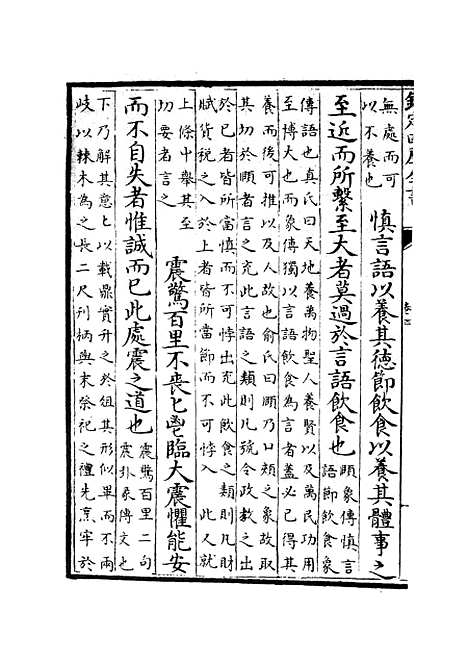 欽定四庫全書
無處而可
以不養也
慎言語以養其徳節飲食以養其體事之
至近而所繫至大者莫過於言語飲食也
頤象傳慎言
語節飲食象
傳語也真氏曰天地養萬物聖人養賢以及萬民功用
至博大也而象傳獨以言語飲食為言者蓋必己得其
養而後可推以及人故也俞氏曰頤乃口頰之象故取
其切於頤者言之充此言語之類則凡號令政教之出
於已者皆所當慎而不可悖出充此飲食之類則凡財
賦貨税之入於上者皆所當節而不可悖入　此人就
上條中舉其至
切要者言之
震驚百里不喪匕鬯臨大震懼能安
而不自失者惟誠而已此處震之道也
震驚百里二句
震卦彖傳文也
下乃解其意匕以載鼎實升之於俎其形似畢而不兩
岐以棘木為之長二尺刋柄與末祭祀之禮先烹牢於